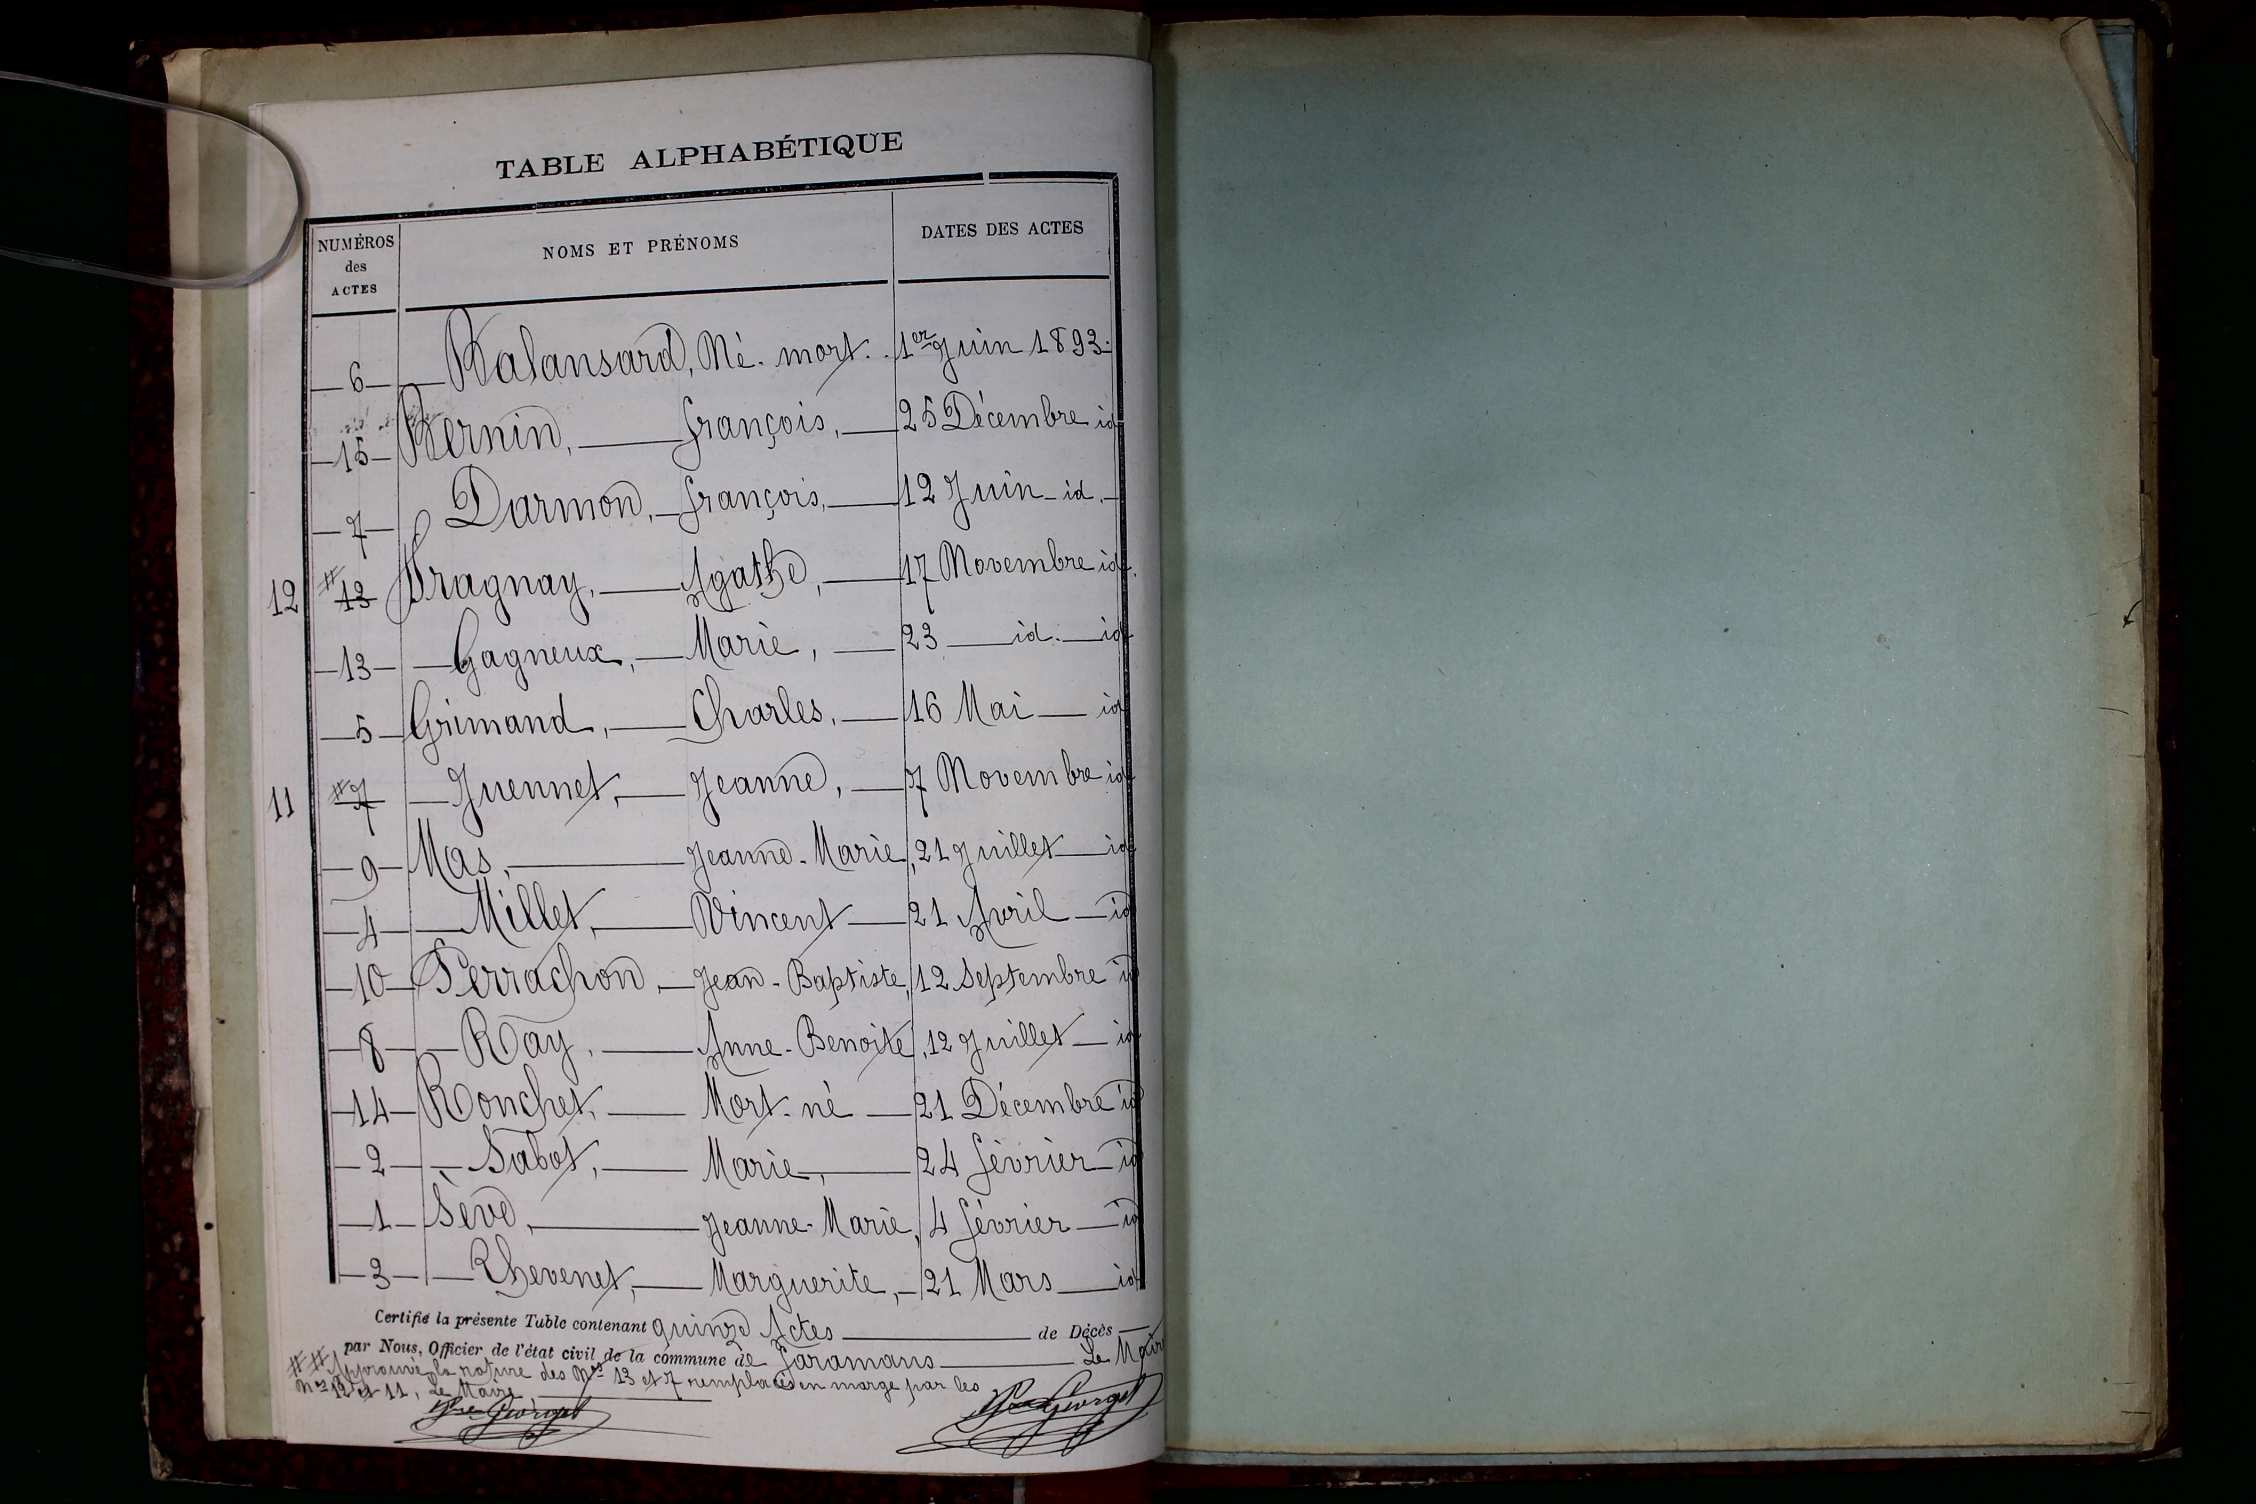 TABLE ALPHABÉTIQUE
NUMÉROS des ACTES NOMS ET PRÉNOMS DATES DES ACTES
6 Balansard, Né-mort. 1er Juin 1893.
15 Bernin, François, 25 Décembre id
7 Darmon, François, 12 Juin id.
12 # 13 Fragnay, Agathe, 17 Novembre id.
13 Gagneux, Marie, 23 id. id
5 Grimand, Charles, 16 Mai id
11 # 7 Juennet, Jeanne, 7 Novembre id
9 Mas, Jeanne-Marie, 21 Juillet id
4 Millet, Vincent 21 Avril id
10 Perrachon, Jean-Baptiste, 12 Septembre id
8 Ray, Anne-Benoite, 12 Juillet id
14 Ronchet, Mort-né 21 Décembre id
2 Sabot, Marie, 24 Février id
1 Sève, Jeanne-Marie, 4 Février id
3 Thevenet, Marguerite, 21 Mars id
Certifié la présente Table contenant quinze Actes de Décès
par Nous, Officier de l'état civil de la commune de Faramans Le Maire
## Approuvé la rature des Nos 13 et 7 remplacés en marge par les
Nos 12 et 11, Le Maire,
Georget Georget